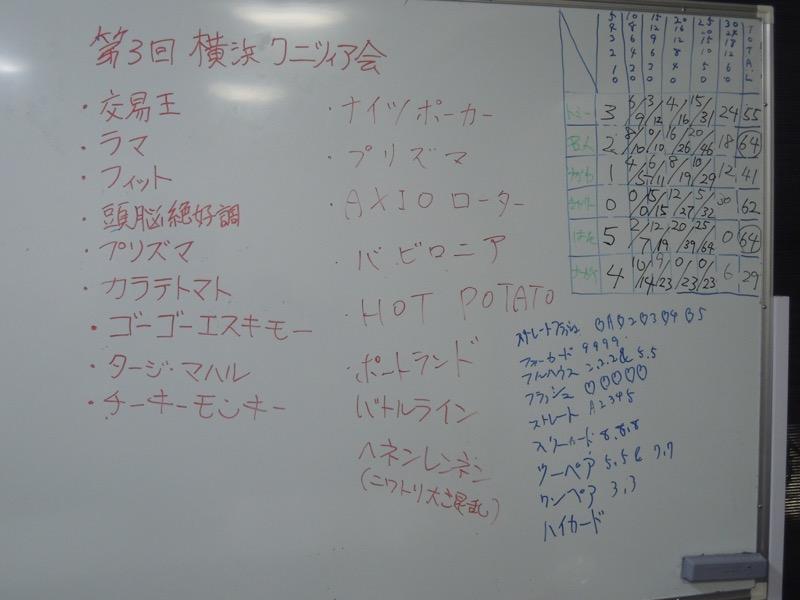 第3回 横浜クニツィア会
・交易王
・ラマ
・フィット
・頭脳絶好調
・プリズマ
・カラテトマト
・ゴーゴーエスキモー
・タージ・マハル
・チーキーモンキー
・ナイツポーカー
・プリズマ
・AXIOローター
・バビロニア
・HOT POTATO
・ポートランド
バトルライン
ヘネンレンネン
(ニワトリ大混乱)
5 10 15 20 25 30 TOTAL
4 8 12 16 20 24
3 6 9 12 15 18
2 4 6 8 10 12
1 2 3 4 5 6
0 0 0 0 0 0
3 6/9 3/12 4/16 15/31 24 55
2 8/10 0/10 16/26 20/46 18 64
1 4/5 6/11 8/19 10/29 12 41
0 0/0 15/15 12/27 5/32 30 62
5 2/7 12/19 20/39 25/64 0 64
4 10/14 9/23 0/23 0/23 6 29
ストレートフラッシュ ♡A♡2♡3♡4♡5
フォーカード 9999
フルハウス 2,2,2&5,5
フラッシュ ♡♡♡♡♡
ストレート A2345
スリーカード 8,8,8
ツーペア 5,5&7,7
ワンペア 3,3
ハイカード